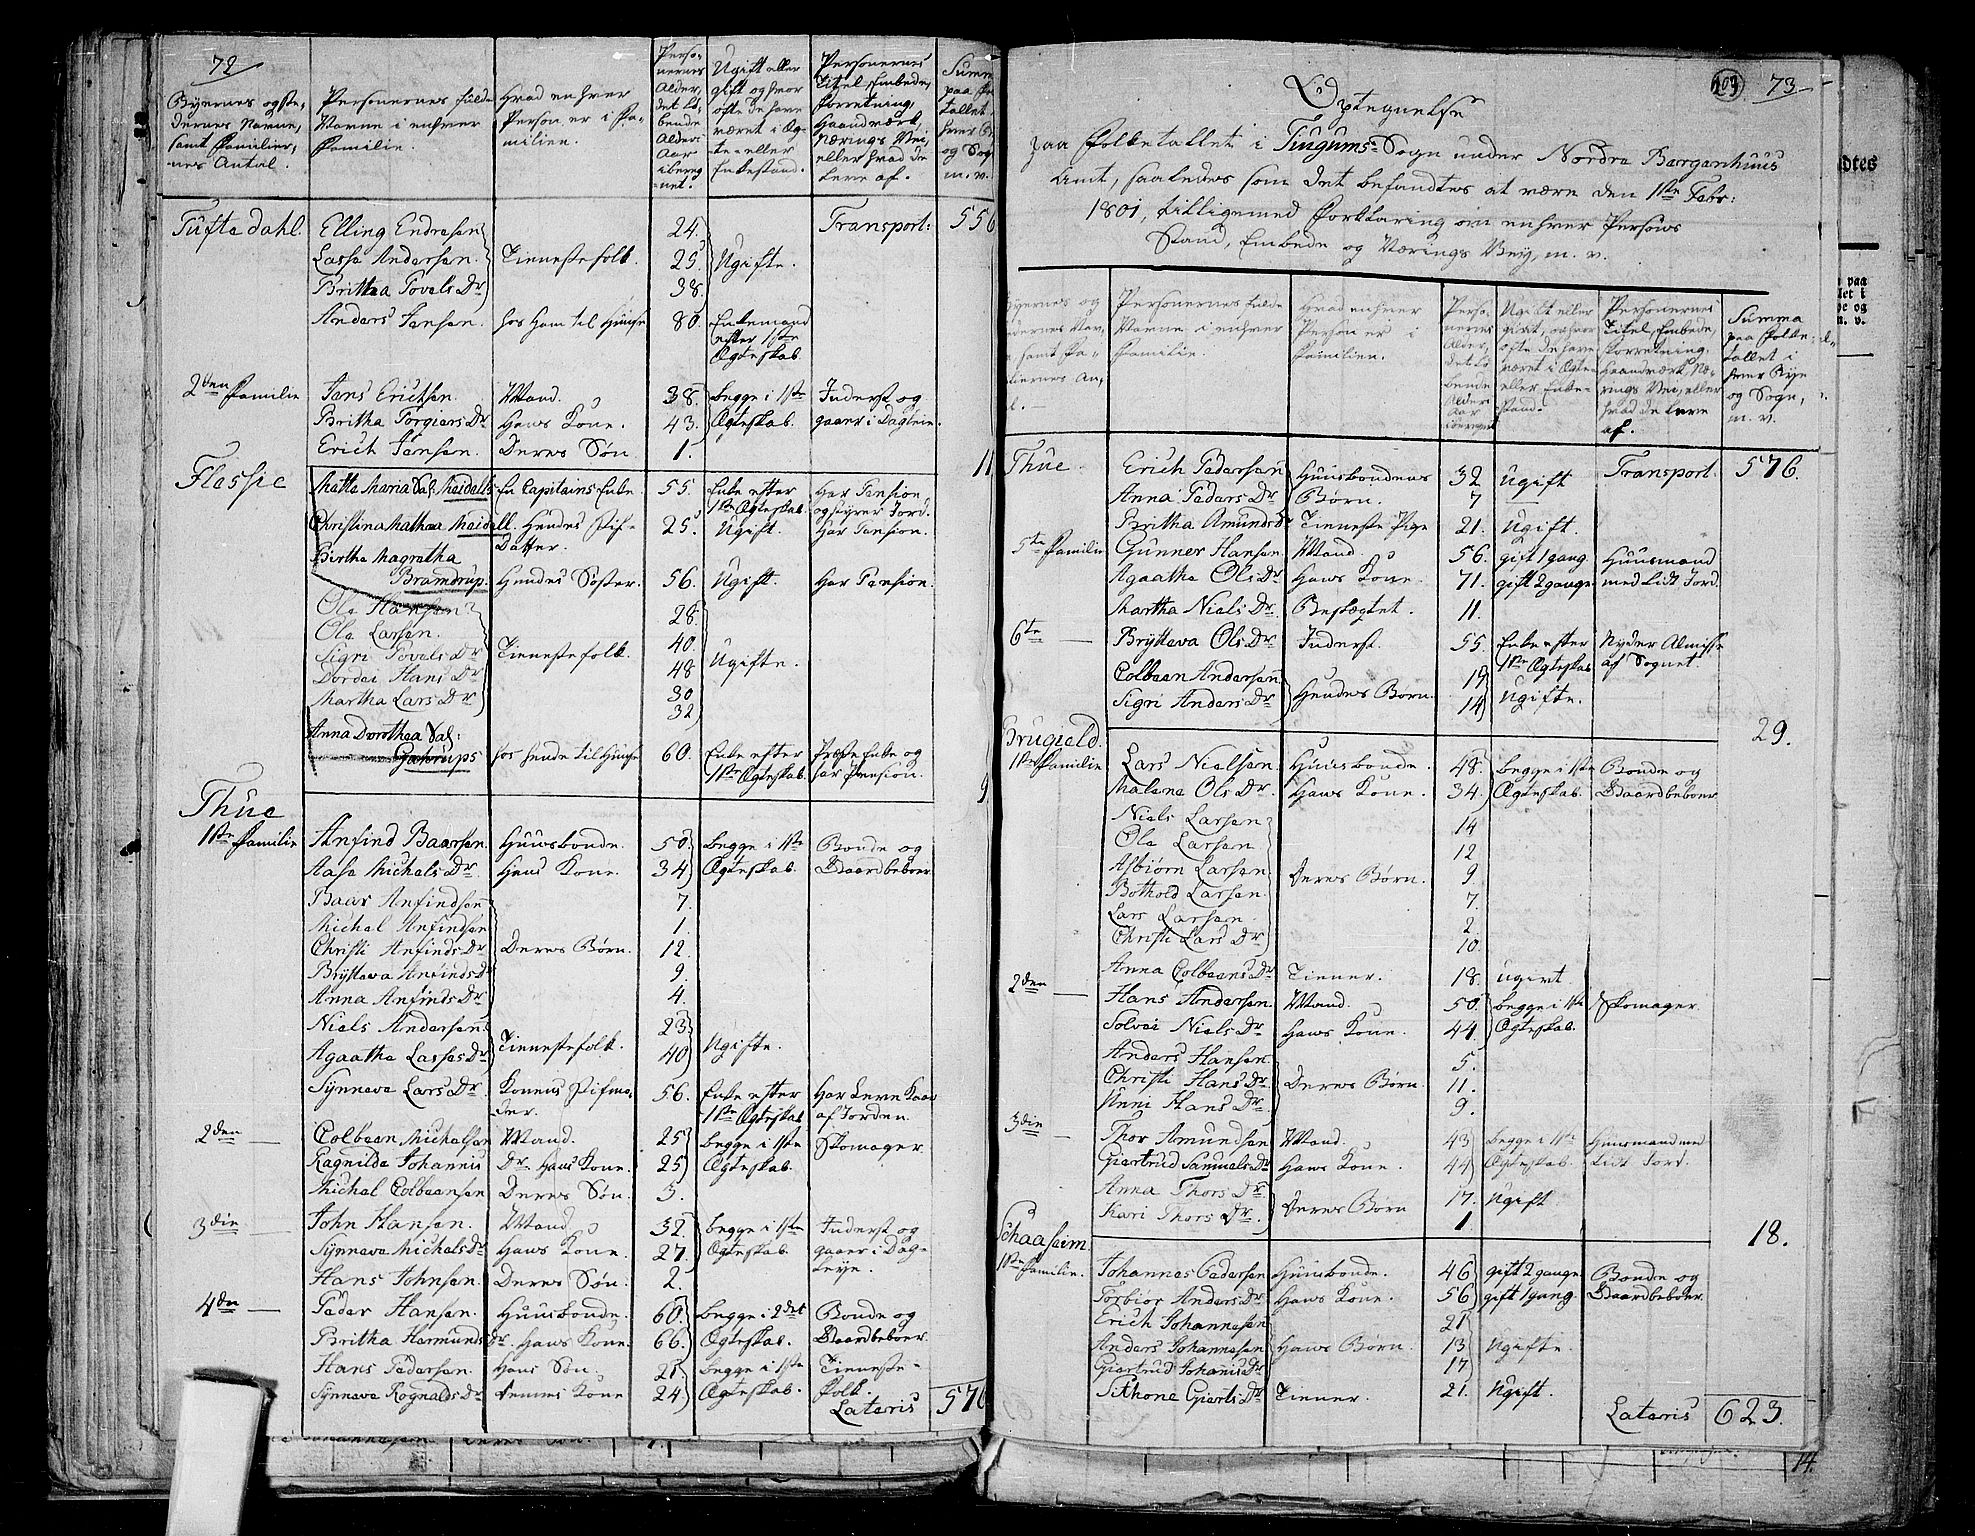 72
Byernes og Ste-
dernes Navne,
samt Familier-
nes Antal.
Personernes fulde
Navne i enhver
Familie.
Hvad enhver
Person er i Fa-
milien.
Perso-
nernes
Alder,
det lö-
bende
Alders
Aar
ibereg-
net.
Ugift eller
gift og hvor
ofte de have
været i Æg-
te- eller
Enkestand.
Personernes
Titel, Embede,
Forretning,
Haandværk,
Nærings Vei,
eller hvad de
leve af.
Summ
paa Fo
tallet
hver B
og Sog
m. v.
Tuftedahl. Elling Endresen 24. Transport: 556
Lasse Andersen. Tienestefolk. 25. Ugifte.
Brithea Povels Dr 38.
Anders Jensen. hos ham til Huuse 80. Enkemand
efter 1ste
Ægteskab.
2den Familie Jens Erichsen. Mand. 38. begge i 1ste Inderst og
Britha Torgiers Dr Hans Kone. 43. Ægteskab. gaaer i Dagleie.
Erich Jensen. Deres Søn. 1. 11
Flessie Mette Maria Sal. Meidells En Capitains Enke 55. Enke efter Har Pension
1ste Ægteskab. og styrer Jord.
Christina Mathea Meidell. Hendes Stif- 25. Ugift. Har Pension.
Datter.
Birthe Magrethe
Bramdrup. Hendes Søster. 56. Ugift. Har Pension.
Ole Hansen 28.
Ole Larsen. 40.
Sigri Povels Dr Tienestefolk. 48 Ugifte.
Dordei Hans Dr 30
Martha Lars Dr 32
Anna Dorothea Sal:
Gastrups hos hende til Huuse 60. Enke efter Præste Enke og
1ste Ægteskab. har Pension. 9
Thue
1ste Familie Anfind Baarsen. Huusbonde. 50. begge i 1ste Bonde og
Aase Michels Dr. Hans Kone. 34 Ægteskab. Gaardbeboer
Baar Anfindsen 7.
Michel Anfindsen 1.
Christi Anfinds Dr Deres Børn. 12.
Brytteva Anfinds Dr 9.
Anna Anfinds Dr. 4.
Niels Andersen 23.
Agaathe Lasses Dr Tienestefolk. 40 Ugifte.
Synneve Lars Dr Konens Stifmo- 56. Enke efter Har Leve Kaar
der. 1ste Ægteskab af Jorden.
2den — Colbeen Michelsen Mand. 25 begge i 1ste Skomager.
Ragnilde Johannis Dr. Hans Kone. 25 Ægteskab.
Michel Colbeensen Deres Søn. 3.
3die — John Hansen. Mand 32. begge i 1ste Inderst og
Synneve Michels Dr Hans Kone. 27. Ægteskab. gaaer i Dag-
leye.
Hans Johnsen. Deres Søn. 2.
4de — Peder Hansen. Huusbonde. 60. begge i 2det Bonde og
Britha Hermunds Dr. Hans Kone. 66. Ægteskab. Gaardbeboer.
Hans Pedersen. Hans Søn. 21. begge i 1ste Tieneste-
Synneve Rognalds Dr. dennes Kone 24. Ægteskab. folk.
Lateris 576
73
Optegnelse
paa Folketallet i Tiugums Sogn under Nordre Bergenhuus
Amt, saaledes som det befandtes at være den 1ste Febr:
1801, tilligemed Forklaring om enhver Persons
Stand, Embede og Nærings Vey, m. v.
Byernes og
dernes Nav-
samt Fa-
liernes An-
l.
Personernes fulde
Navne i enhver
Familie.
Hvad enhver
Person er i
Familien.
Perso-
nernes
Alder,
det lö-
bende
Alders
Aar
iberegnet
Ugift eller
gift, og hvor
ofte de have
været i Ægte-
eller Enke-
stand.
Personernes
Titel, Embede,
Forretning,
Haandværk, Næ-
rings Vei, eller
hvad de leve
af.
Summa
paa Folke-
tallet i
hver Bye
og Sogn,
m. v.
Thue. Erich Pedersen Huusbondens 32 Ugift Transport. 576.
Anna Peders Dr Børn. 7
Britha Amunds Dr Tieneste Pige 21. Ugift.
5te Familie Gunner Hansen Mand. 56. gift 1 gang Huusmand
Agaathe Ols Dr Hans Kone. 71. gift 2 gange. med Lidt Jord.
Martha Niels Dr Beslægtet. 11.
6te — Brytteva Ols Dr Inderst. 55. Enke efter Nyder Almisse
1ste Ægteskab af Sognet
Colbeen Andersen 19
Sigri Anders Dr Hendes Børn. 14 Ugifte.
Brugield. 29.
1ste Familie Lars Nielsen Huusbonde. 48. begge i 1ste Bonde og
Malene Ols Dr. Hans Kone. 34. Ægteskab. Gaardbeboer
Niels Larsen 14
Ole Larsen 12
Asbiörn Larsen Deres Børn. 9.
Bothold Larsen 7.
Lars Larsen 2.
Christi Lars Dr 10.
Anna Colbeens Dr Tiener. 18. ugivt
2den — Hans Andersen Mand. 50. begge i 1ste Skomager.
Solvei Niels Dr Hans Kone. 44. Ægteskab.
Anders Hansen 5.
Christi Hans Dr Deres Børn. 11.
Unni Hans Dr. 9.
3die — Thor Amundsen Mand. 43 begge i 1ste Huusmand med
Giertrud Samuels Dr Hans Kone. 44 Ægteskab. Lidt Jord.
Anna Thors Dr Deres Børn 17. Ugift
Kari Thors Dr. 1
Schaaseim. 18.
1ste Familie. Johannes Pedersen Huusbonde. 46 gift 2 gange Bonde og
Torbior Anders Dr Hans Kone. 56 gift 1 gang Gaardbeboer.
Erich Johannesen 21
Anders Johannesen Hans Børn. 13 Ugifte.
Giertrud Johannis Dr 17
Sithone Gierts Dr Tiener. 21. Ugift.
Lateris 623.
14.